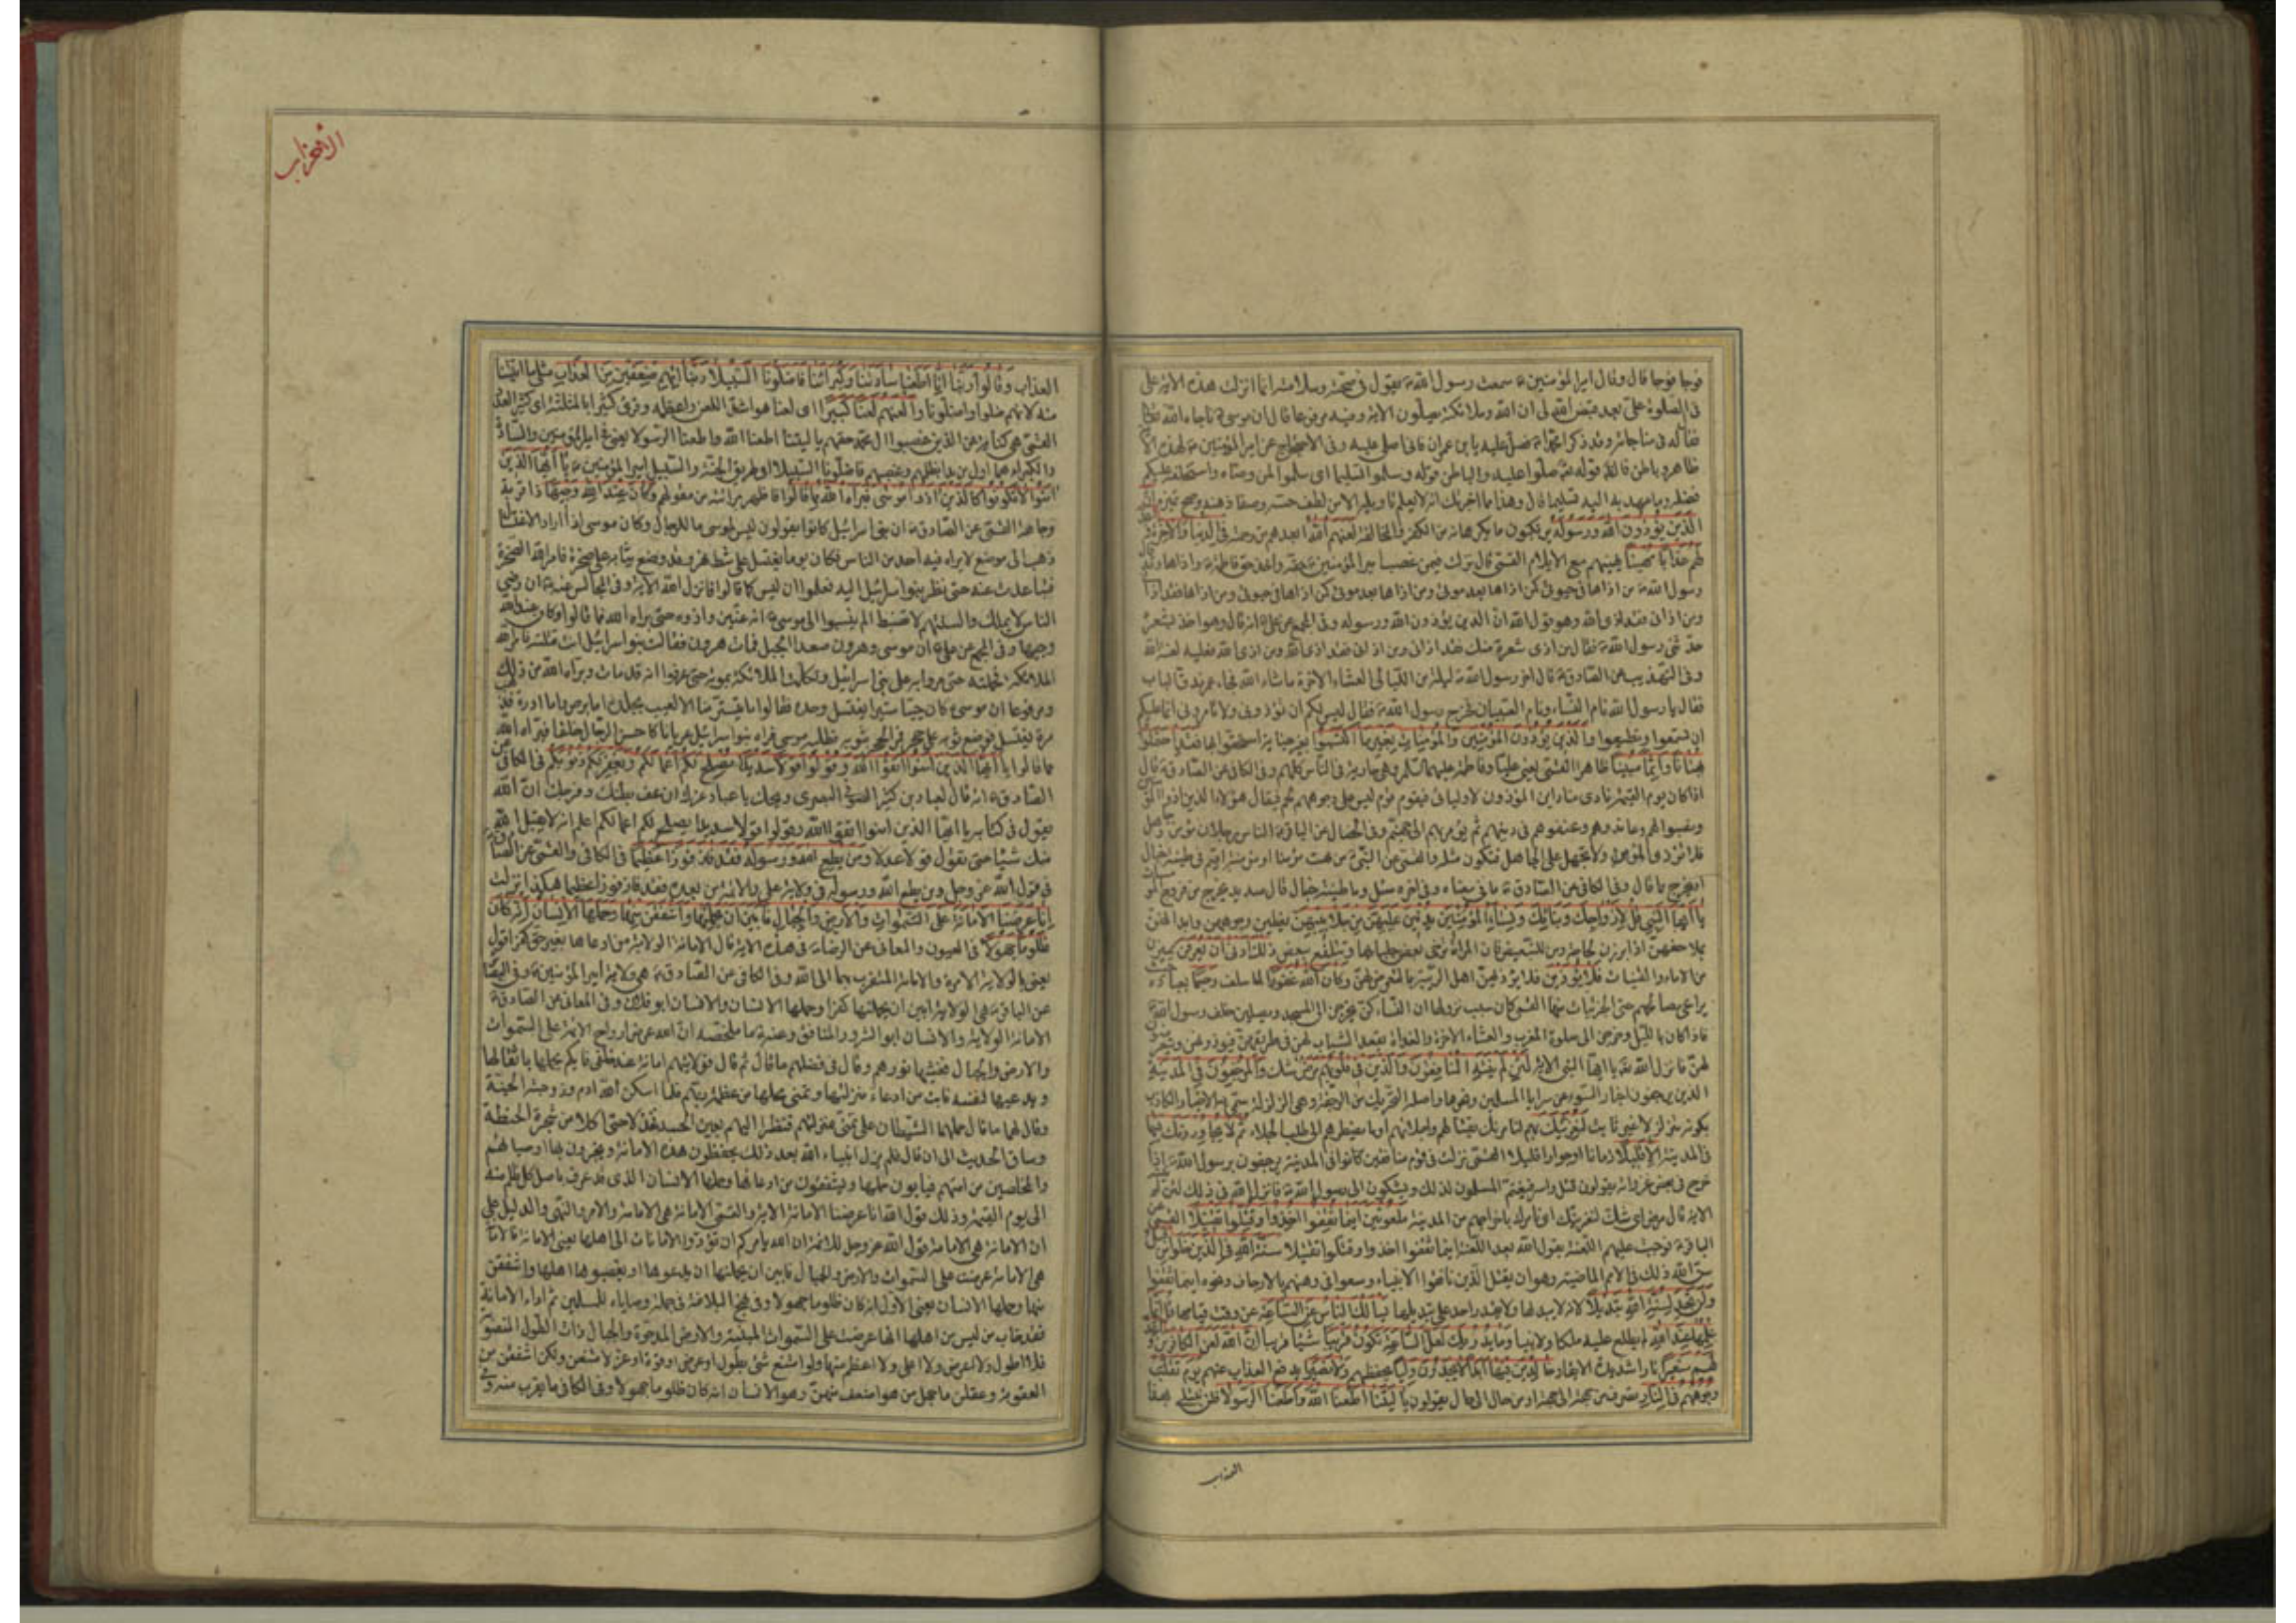 فوجا فوجا قال وقال امير المؤمنين ع سمعت رسول الله ص يقول في صحته وسلامته انما انزلت هذه الاية على
في الصلوة على بعد قبض الله لي ان الله وملائكته يصلون الاية وفيه مرفوعا قال ان موسى ع ناجاه الله
فقال له في مناجاته وقد ذكر محمدا ص فصل عليه يا بن عمران فاني اصلي عليه وفي الاحتجاج عن امير المؤمنين ع لهذه الاية
ظاهر وباطن فالظاهر قوله صلوا عليه والباطن قوله وسلموا تسليما اي سلموا لمن وصاه واستخلفه عليكم
فضله وما عهد به اليه تسليما قال وهذا مما اخبرتك انه لا يعلم تاويله الا من لطف حسه وصفا ذهنه وصح تميزه ان
الذين يؤذون الله ورسوله يرتكبون ما يكرهانه من الكفر والمخالفة لعنهم الله ابعدهم من رحمته في الدنيا والاخرة واعد
لهم عذابا مهينا يهينهم مع الايلام القمي قال نزلت فيمن غصب امير المؤمنين ع حقه واخذ حق فاطمة ع واذاها وقد قال
رسول الله ص من اذاها في حيوتي كمن اذاها بعد موتي ومن اذاها بعد موتي كمن اذاها في حيوتي ومن اذاها فقد اذاني
ومن اذاني فقد اذى الله وهو قول الله ان الذين يؤذون الله ورسوله وفي المجمع عن علي ع انه قال وهو اخذ بشعره
حدثني رسول الله ص فقال من اذى شعرة منك فقد اذاني ومن اذاني فقد اذى الله ومن اذى الله فعليه لعنة الله
وفي التهذيب عن الصادق ع قال اخر رسول الله ص ليلة من الليالي العشاء الاخرة ما شاء الله فجاء عمر فدق الباب
فقال يا رسول الله نام النساء ونام الصبيان فخرج رسول الله ص فقال ليس لكم ان تؤذوني ولا تامروني انما عليكم
ان تسمعوا وتطيعوا والذين يؤذون المؤمنين والمؤمنات بغير ما اكتسبوا بغير جناية استحقوا بها فقد احتملوا
بهتانا واثما مبينا ظاهرا القمي يعني عليا وفاطمة عليهما السلام وهي جارية في الناس كلهم وفي الكافي عن الصادق ع قال
اذا كان يوم القيمة نادى مناد اين المؤذون لاوليائي فيقوم قوم ليس على وجوههم لحم فيقال هؤلاء الذين اذوا المؤمنين
ونصبوا لهم وعاندوهم وعنفوهم في دينهم ثم يؤمر بهم الى جهنم وفي الخصال عن الباقر ع الناس رجلان مؤمن وجاهل
فلا تؤذ المؤمن ولا تجهل على الجاهل فتكون مثله والقمي عن النبي ص من بهت مؤمنا او مؤمنة اقيم في طينة خبال
او يخرج مما قال وفي الكافي عن الصادق ع ما في معناه وفي اخره سئل وما طينة خبال قال صديد يخرج من فروج المومسات
يا ايها النبي قل لازواجك وبناتك ونساء المؤمنين يدنين عليهن من جلابيبهن يغطين وجوههن وابدانهن
بملاحفهن اذا برزن لحاجة ومن للتبعيض فان المراة ترخي بعض جلبابها وتتلفع ببعض ذلك ادنى ان يعرفن يميزن
من الاماء والقينات فلا يؤذين فلا يؤذيهن اهل الريبة بالتعرض لهن وكان الله غفورا لما سلف رحيما بعباده حيث
يراعي مصالحهم حتى الجزئيات منها القمي كان سبب نزولها ان النساء كن يخرجن الى المسجد ويصلين خلف رسول الله ص
فاذا كان بالليل وخرجن الى صلوة المغرب والعشاء الاخرة والغداة يقعد الشباب لهن في طريقهن فيؤذونهن ويتعرضون
لهن فانزل الله يا ايها النبي الاية لئن لم ينته المنافقون والذين في قلوبهم مرض شك والمرجفون في المدينة
الذين يرجفون اخبار السوء عن سرايا المسلمين ونحوها واصله التحريك من الرجفة وهي الزلزلة سمي به الاخبار الكاذب
لكونه متزلزلا غير ثابت لنغرينك بهم لنامرنك بقتالهم واجلائهم او ما يضطرهم الى طلب الجلاء ثم لا يجاورونك فيها
في المدينة الا قليلا زمانا او جوارا قليلا القمي نزلت في قوم منافقين كانوا في المدينة يرجفون برسول الله ص اذا
خرج في بعض غزواته يقولون قتل واسر فيغتم المسلمون لذلك ويشكون الى رسول الله ص فانزل الله في ذلك لئن لم
الاية قال مرض اي شك لنغرينك اي نامرك باخراجهم من المدينة ملعونين اينما ثقفوا اخذوا وقتلوا تقتيلا القمي عن
الباقر ع فوجبت عليهم اللعنة يقول الله بعد اللعنة اينما ثقفوا اخذوا وقتلوا تقتيلا سنة الله في الذين خلوا من قبل
سن الله ذلك في الامم الماضية وهو ان يقتل الذين نافقوا الانبياء وسعوا في وهنهم بالارجاف ونحوه اينما ثقفوا
ولن تجد لسنة الله تبديلا لانه لا يبدلها ولا يقدر احد على تبديلها يسالك الناس عن الساعة عن وقت قيامها قل انما
علمها عند الله لم يطلع عليه ملكا ولا نبيا وما يدريك لعل الساعة تكون قريبا شيئا قريبا ان الله لعن الكافرين واعد
لهم سعيرا نارا شديدة الايقاد خالدين فيها ابدا لا يجدون وليا يحفظهم ولا نصيرا يدفع العذاب عنهم يوم تقلب
وجوههم في النار تصرف من جهة الى جهة او من حال الى حال يقولون يا ليتنا اطعنا الله واطعنا الرسولا فلن نبتلى بهذا
العذاب
الاحزاب
العذاب وقالوا ربنا انا اطعنا سادتنا وكبرائنا فاضلونا السبيلا ربنا اتهم ضعفين من العذاب مثلي ما اتيتنا
منه لانهم ضلوا واضلونا والعنهم لعنا كبيرا اي لعنا هو اشد اللعن واعظمه وقرئ كثيرا بالمثلثة اي كثير العدد
القمي هي كناية عن الذين غصبوا ال محمد حقهم يا ليتنا اطعنا الله واطعنا الرسولا يعني في امير المؤمنين والسادة
والكبراء هما اول من بدا بظلمهم وغصبهم فاضلونا السبيلا اي طريق الجنة والسبيل امير المؤمنين ع يا ايها الذين
امنوا لا تكونوا كالذين اذوا موسى فبراه الله مما قالوا فاظهر برائته من مقولهم وكان عند الله وجيها ذا قربة
ووجاهة القمي عن الصادق ع ان بني اسرائيل كانوا يقولون ليس لموسى ما للرجال وكان موسى اذا اراد الاغتسال
ذهب الى موضع لا يراه فيه احد من الناس فكان يوما يغتسل على شط نهر وقد وضع ثيابه على صخرة فامر الله الصخرة
فتباعدت عنه حتى نظر بنو اسرائيل اليه فعلموا ان ليس كما قالوا فانزل الله الاية وفي المجالس عنه ع ان رضى
الناس لا يملك والسنتهم لا تضبط الم ينسبوا الى موسى ع انه عنين واذوه حتى براه الله مما قالوا وكان عند الله
وجيها وفي المجمع عن علي ع ان موسى وهرون صعدا الجبل فمات هرون فقالت بنو اسرائيل انت قتلته فامر الله
الملائكة فحملته حتى مروا به على بني اسرائيل وتكلمت الملائكة بموته حتى عرفوا انه قد مات وبراه الله من ذلك
ومرفوعا ان موسى ع كان حييا ستيرا يغتسل وحده فقالوا ما يتستر منا الا لعيب بجلده اما برص واما ادرة فذهب
مرة يغتسل فوضع ثوبه على حجر فمر الحجر بثوبه فطلبه موسى فراه بنو اسرائيل عريانا كاحسن الرجال خلقا فبراه الله
مما قالوا يا ايها الذين امنوا اتقوا الله وقولوا قولا سديدا يصلح لكم اعمالكم ويغفر لكم ذنوبكم في الكافي عن
الصادق ع انه قال لعباد بن كثير الصوفي البصري ويحك يا عباد غرك ان عف بطنك وفرجك ان الله
يقول في كتابه يا ايها الذين امنوا اتقوا الله وقولوا قولا سديدا يصلح لكم اعمالكم اعلم انه لا يقبل الله
منك شيئا حتى تقول قولا عدلا ومن يطع الله ورسوله فقد فاز فوزا عظيما في الكافي والقمي عن الصادق ع
في قول الله عز وجل ومن يطع الله ورسوله في ولاية علي والائمة من بعده فقد فاز فوزا عظيما هكذا نزلت
انا عرضنا الامانة على السموات والارض والجبال فابين ان يحملنها واشفقن منها وحملها الانسان انه كان
ظلوما جهولا في العيون والمعاني عن الرضا ع في هذه الاية قال الامانة الولاية من ادعاها بغير حق كفر اقول
يعني بالولاية الامرة والامامة المتقرب بها الى الله وفي الكافي عن الصادق ع هي ولاية امير المؤمنين ع وفي البصائر
عن الباقر ع هي الولاية ابين ان يحملنها كفرا وحملها الانسان والانسان ابو فلان وفي المعاني عن الصادق ع
الامانة الولاية والانسان ابو الشرور المنافق وعنه ع ما ملخصه ان الله عرض ارواح الائمة على السموات
والارض والجبال فغشيها نورهم وقال في فضلهم ما قال ثم قال فولايتهم امانة عند خلقي فايكم يحملها باثقالها
ويدعيها لنفسه فابت من ادعاء منزلتها وتمني محلها من عظمة ربهم فلما اسكن الله ادم وزوجته الجنة
وقال لهما ما قال حملهما الشيطان على تمني منزلتهم فنظرا اليهم بعين الحسد فخذلا حتى اكلا من شجرة الحنطة
وساق الحديث الى ان قال فلم يزل انبياء الله بعد ذلك يحفظون هذه الامانة ويخبرون بها اوصيائهم
والمخلصين من امتهم فيابون حملها ويشفقون من ادعائها وحملها الانسان الذي قد عرف باصل كل ظلم منه
الى يوم القيمة وذلك قول الله انا عرضنا الامانة الاية والقمي الامانة هي الامامة والامر والنهي والدليل على
ان الامانة هي الامامة قول الله عز وجل للائمة ان الله يامركم ان تؤدوا الامانات الى اهلها يعني الامامة فالامانة
هي الامامة عرضت على السموات والارض والجبال فابين ان يحملنها ان يدعوها او يغصبوها اهلها واشفقن
منها وحملها الانسان يعني الاول انه كان ظلوما جهولا وفي نهج البلاغة في جملة وصاياه للمسلمين ثم اداء الامانة
فقد خاب من ليس من اهلها انها عرضت على السموات المبنية والارض المدحوة والجبال ذات الطول المنصوبة
فلا اطول ولا اعرض ولا اعلى ولا اعظم منها ولو امتنع شئ بطول او عرض او قوة او عز لامتنعن ولكن اشفقن من
العقوبة وعقلن ما جهل من هو اضعف منهن وهو الانسان انه كان ظلوما جهولا وفي الكافي ما يقرب منه وفي